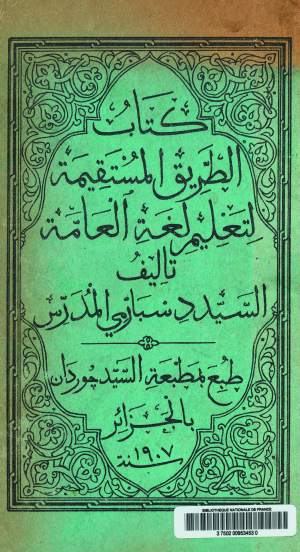 كتاب
الطريق المستقيمة
لتعليم لغة العامة
تاليف
السيد د سبارمي المدرس
طبع بمطبعة السيد جوردان
بالجزائر
سنة ١٩٠٧
BIBLIOTHEQUE NATIONALE DE FRANCE
3 7502 00953453 0